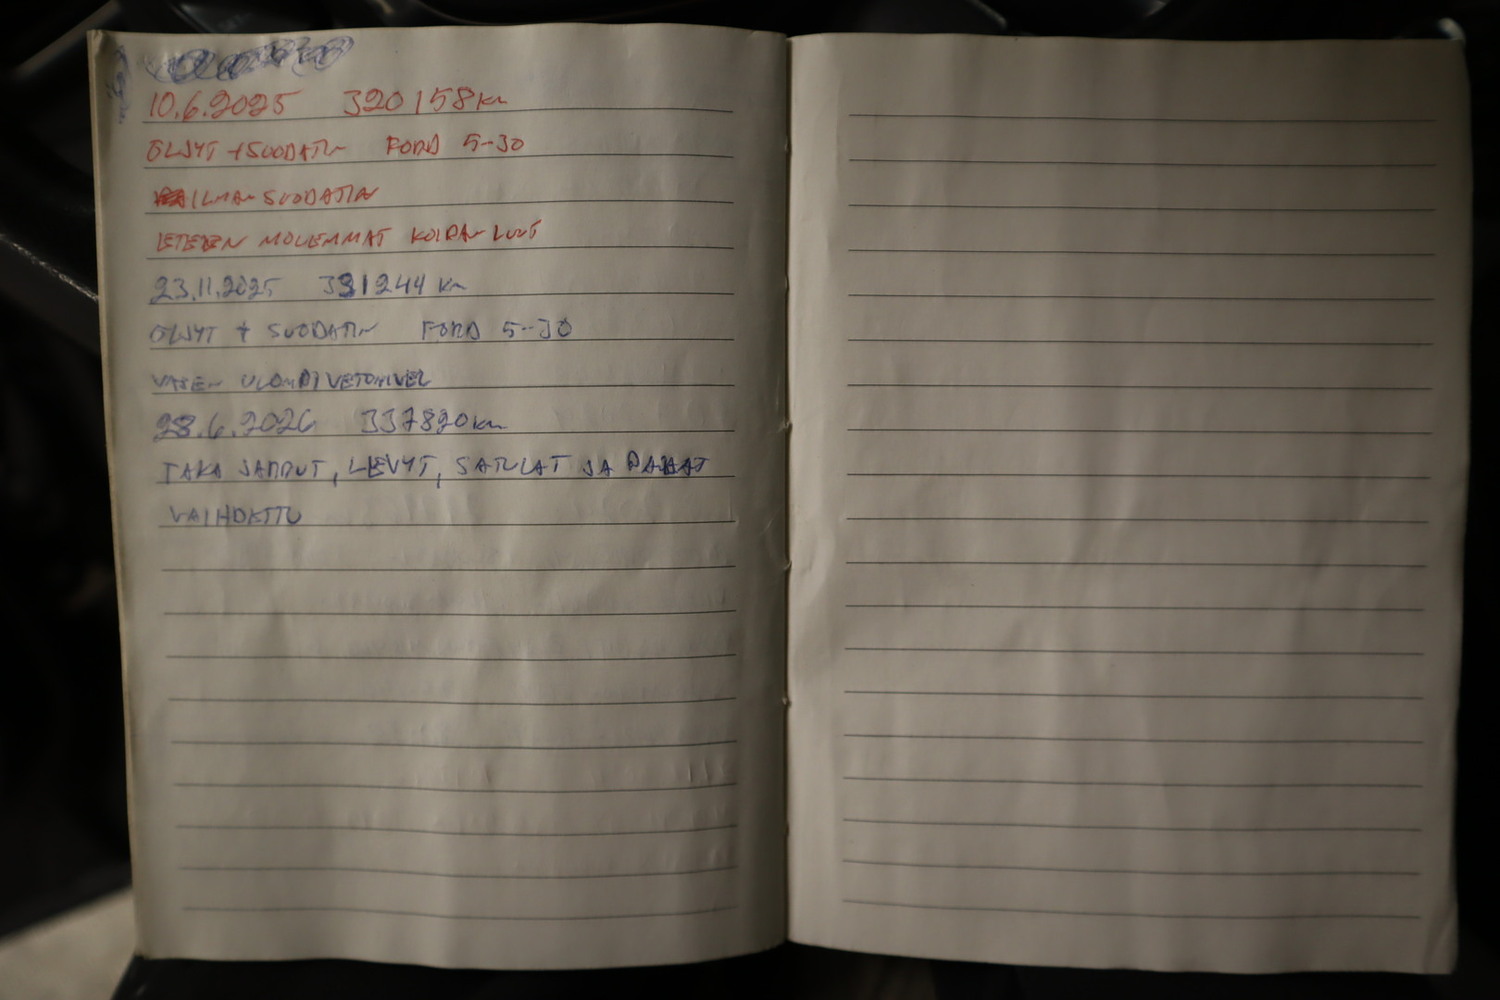 10.6.2025 320158km
ÖLJYT + SUODATIN FORD 5-30
ILMANSUODATIN
ETEEN MOLEMMAT KOIRANLUUT
23.11.2025 331244 km
ÖLJYT + SUODATIN FORD 5-30
VASEN ULOMPI VETONIVEL
28.6.2026 337820km
TAKA JARRUT, LEVYT, SATULAT JA PALAT
VAIHDETTU